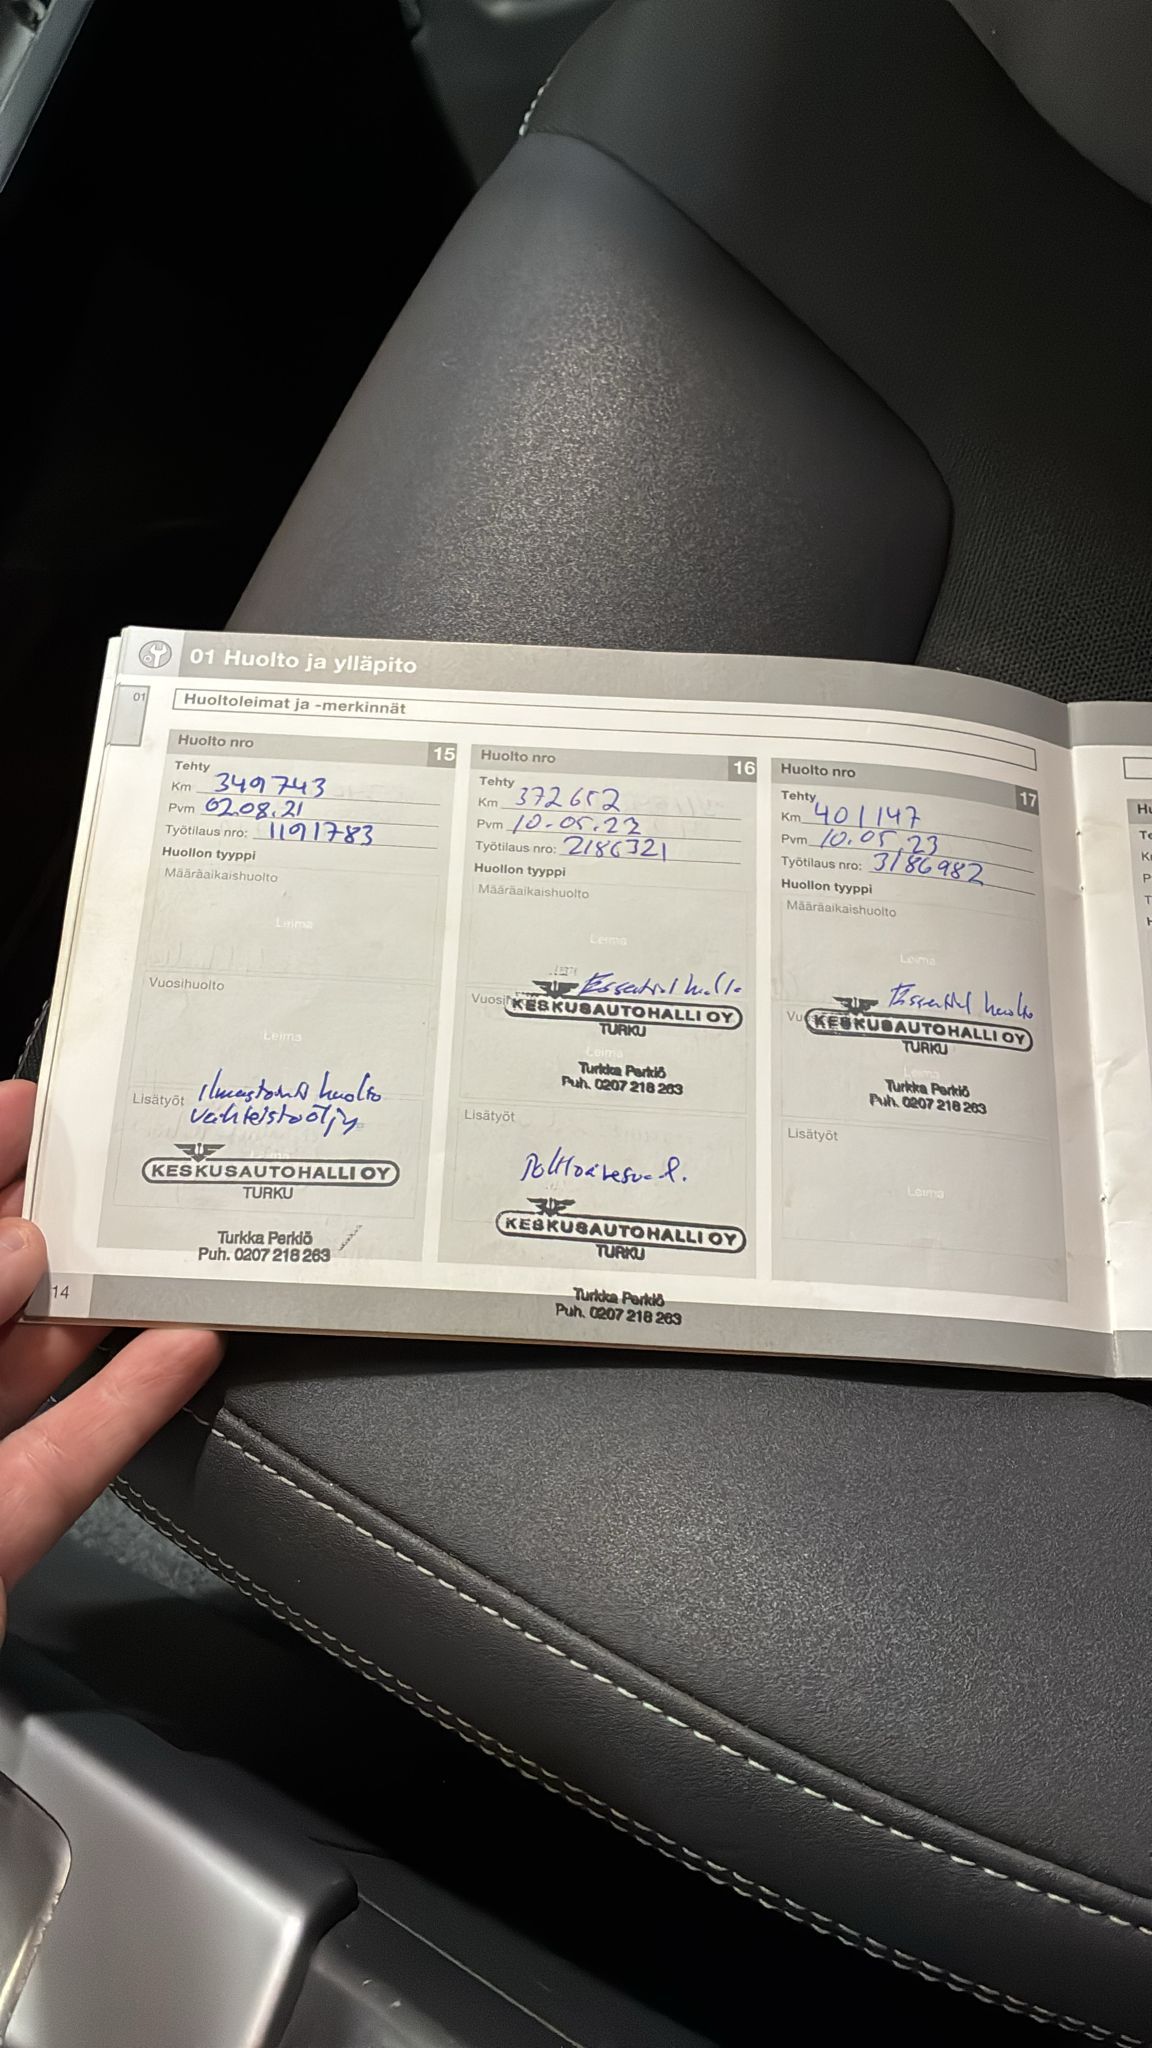 01 Huolto ja ylläpito
01
Huoltoleimat ja -merkinnät
Huolto nro 15
Tehty
Km 349743
Pvm 02.08.21
Työtilaus nro: 1191783
Huollon tyyppi
Määräaikaishuolto
Leima
Vuosihuolto
Leima
Lisätyöt
Ilmastointi huolto
vaihteistoöljy
KESKUSAUTOHALLI OY
TURKU
Turkka Perkiö
Puh. 0207 218 263
14
Huolto nro 16
Tehty
Km 372652
Pvm 10.05.22
Työtilaus nro: 2186321
Huollon tyyppi
Määräaikaishuolto
Leima
Essential
KESKUSAUTOHALLI OY
TURKU
Leima
Turkka Perkiö
Puh. 0207 218 263
Lisätyöt
KESKUSAUTOHALLI OY
TURKU
Turkka Perkiö
Puh. 0207 218 263
Huolto nro 17
Tehty
Km 401147
Pvm 10.05.23
Työtilaus nro: 3186982
Huollon tyyppi
Määräaikaishuolto
Leima
Essential huolto
KESKUSAUTOHALLI OY
TURKU
Turkka Perkiö
Puh. 0207 218 263
Lisätyöt
Leima